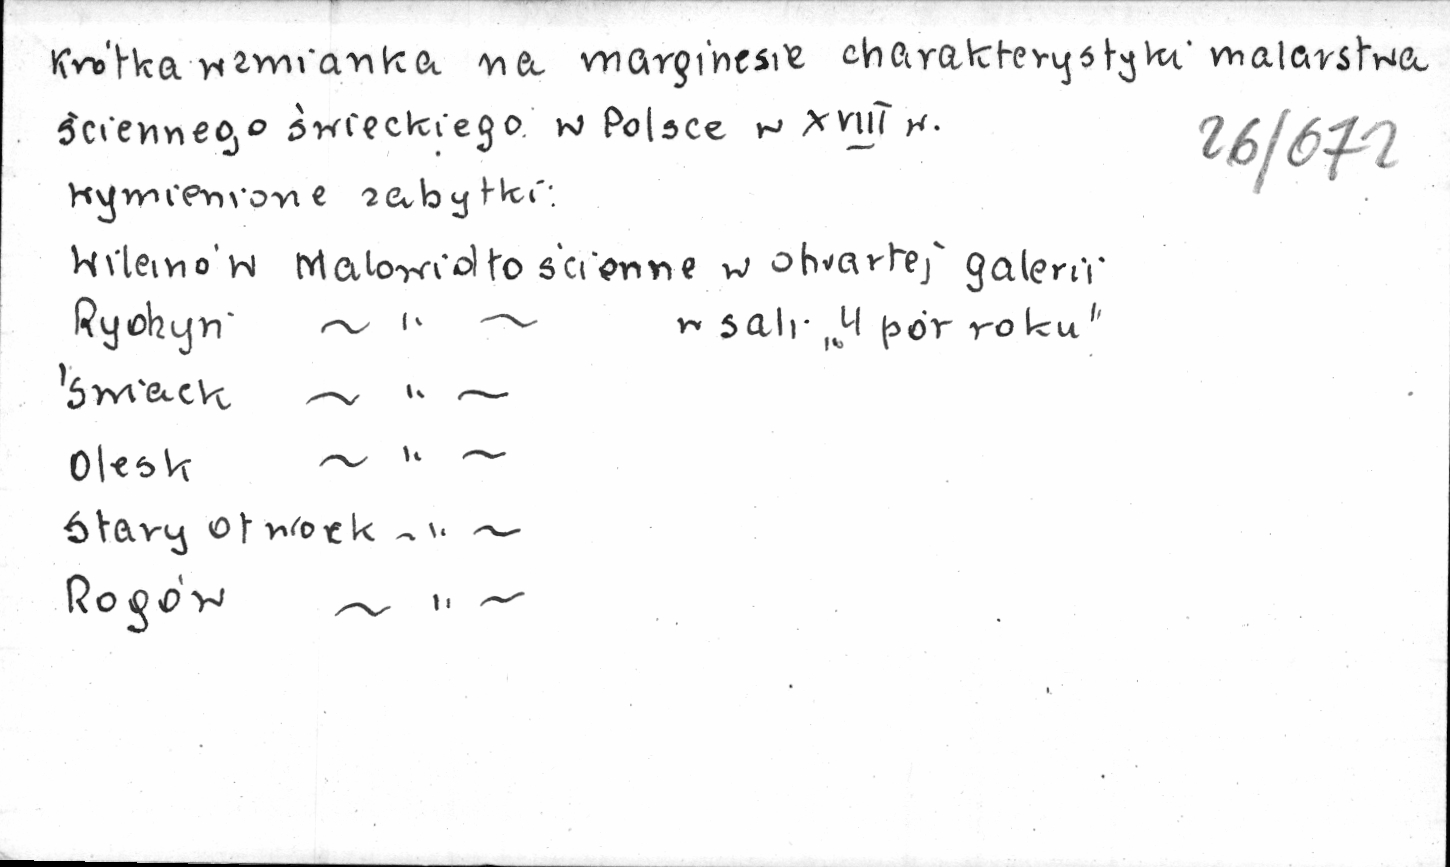 Krótka wzmianka na marginesie charakterystyki malarstwa
ściennego świeckiego w Polsce w XVIII w.
26/672
Wymienione zabytki:
Wilanów Malowidło ścienne w otwartej galerii
Rydzyn ~ " ~ w sali „4 pór roku"
Śmiack ~ " ~
Olesk ~ " ~
Stary Otwock ~ " ~
Rogów ~ " ~